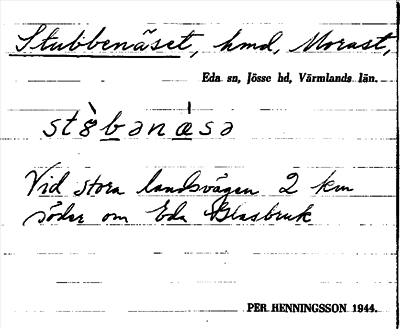 Stubbenäset, hmd, Morast,
Eda sn, Jösse hd, Värmlands län.
st8̀bənæ̀sə
Vid stora landsvägen 2 km
söder om Eda Glasbruk
PER HENNINGSSON 1944.